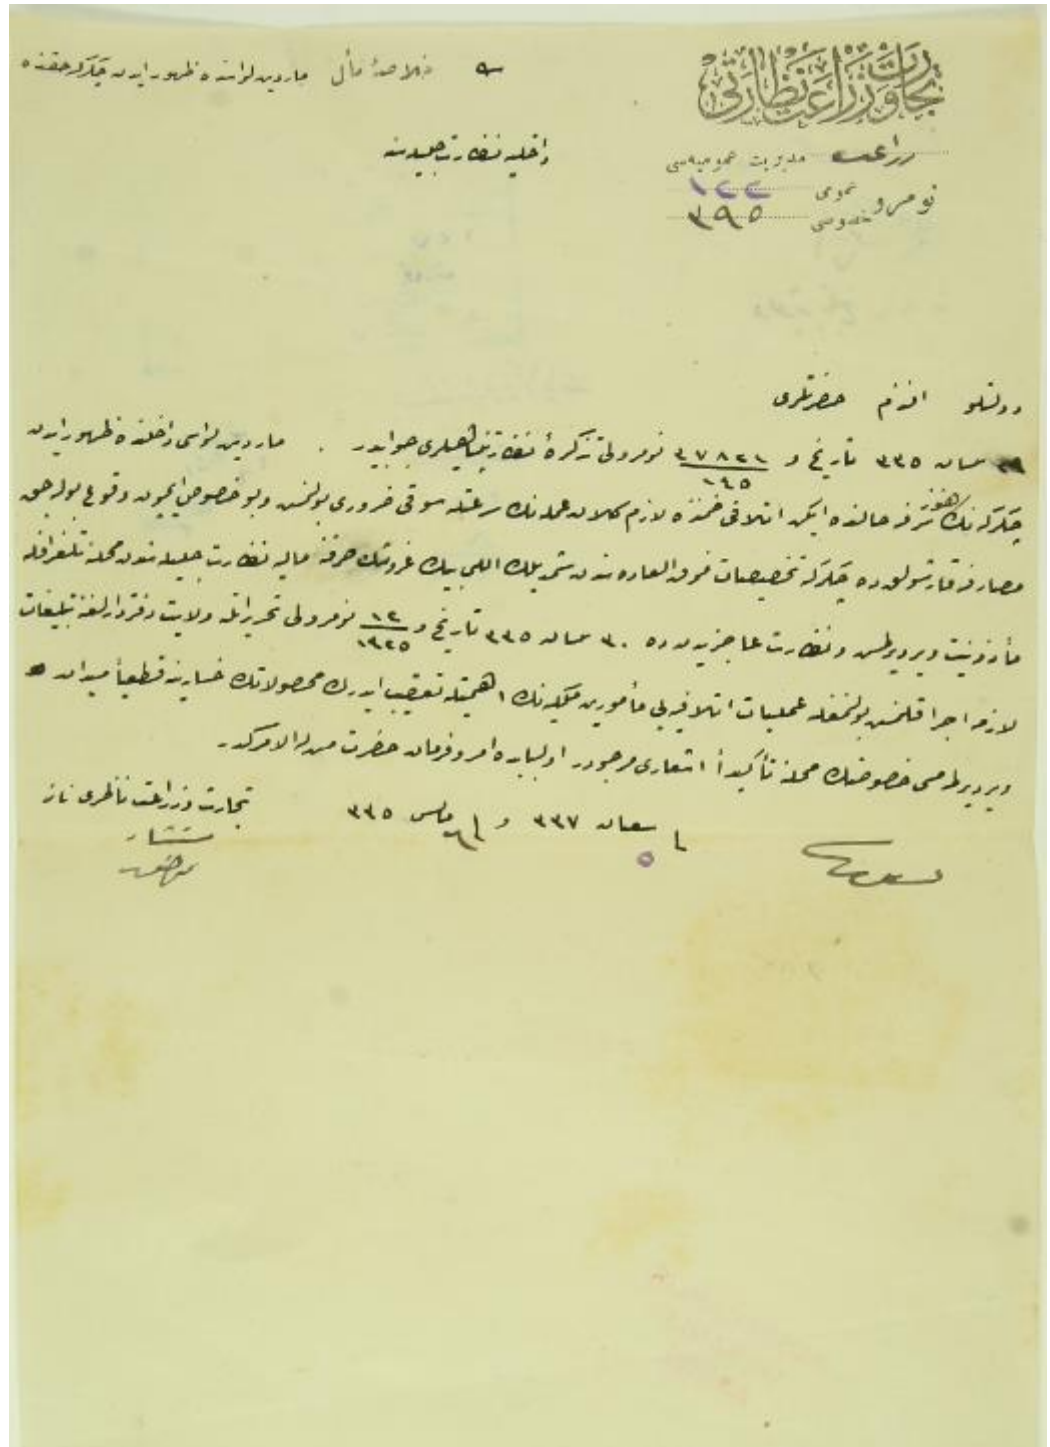 تجارت وزراعت نظارتی
زراعت مدیریت عمومیه‌سی
نومرو
عمومی ١٢٢
خصوصی ٣٩٥
خلاصۀ مآل ماردین لواسنده ظهور ایدن چکرکه حقنده
داخلیه نظارت جلیله‌سنه
دولتلو افندم حضرتلری
نیسان ٣٣٥ تاریخ و نومرولی تذکرۀ نظارتپناهیلری جوابیدر . ماردین لواسی داخلنده ظهور ایدن
چکرکه‌نك هنوز سرفه حالنده ایکن اتلافی ضمننده لازم کلان عمله‌نك سرعتله سوقی ضروری بولنمش وبو خصوص ایچون وقوع بوله‌جق
مصارفه قارشولق ده چکرکه تخصیصات فوق العاده‌سندن شمدیلك اللی بیك غروشك صرفنه مالیه نظارت جلیله‌سندن محلنه تلغرافله
مأذونیت ویردیرلمش ونظارت عاجزیدن ده ٣٠ نیسان ٣٣٥ تاریخ و ١٢/١٩٢٥ نومرولی تحریراتله ولایت دفتردارلغنه تبلیغات
لازمه اجرا قلنمش بولنمغله عملیات اتلافیه‌یی مأمورین ملکیه‌نك اهمیتله تعقیب ایدرك محصولاتك خسارینه قطعیاً میدان
ویردیرلمه‌مسی خصوصنك محلنه تأکیداً اشعاری مرجودر اولبابده امر وفرمان حضرت من له الامرکدر
شعبان ٣٣٧ و مایس ٣٣٥
تجارت وزراعت ناظری نامنه
مستشار